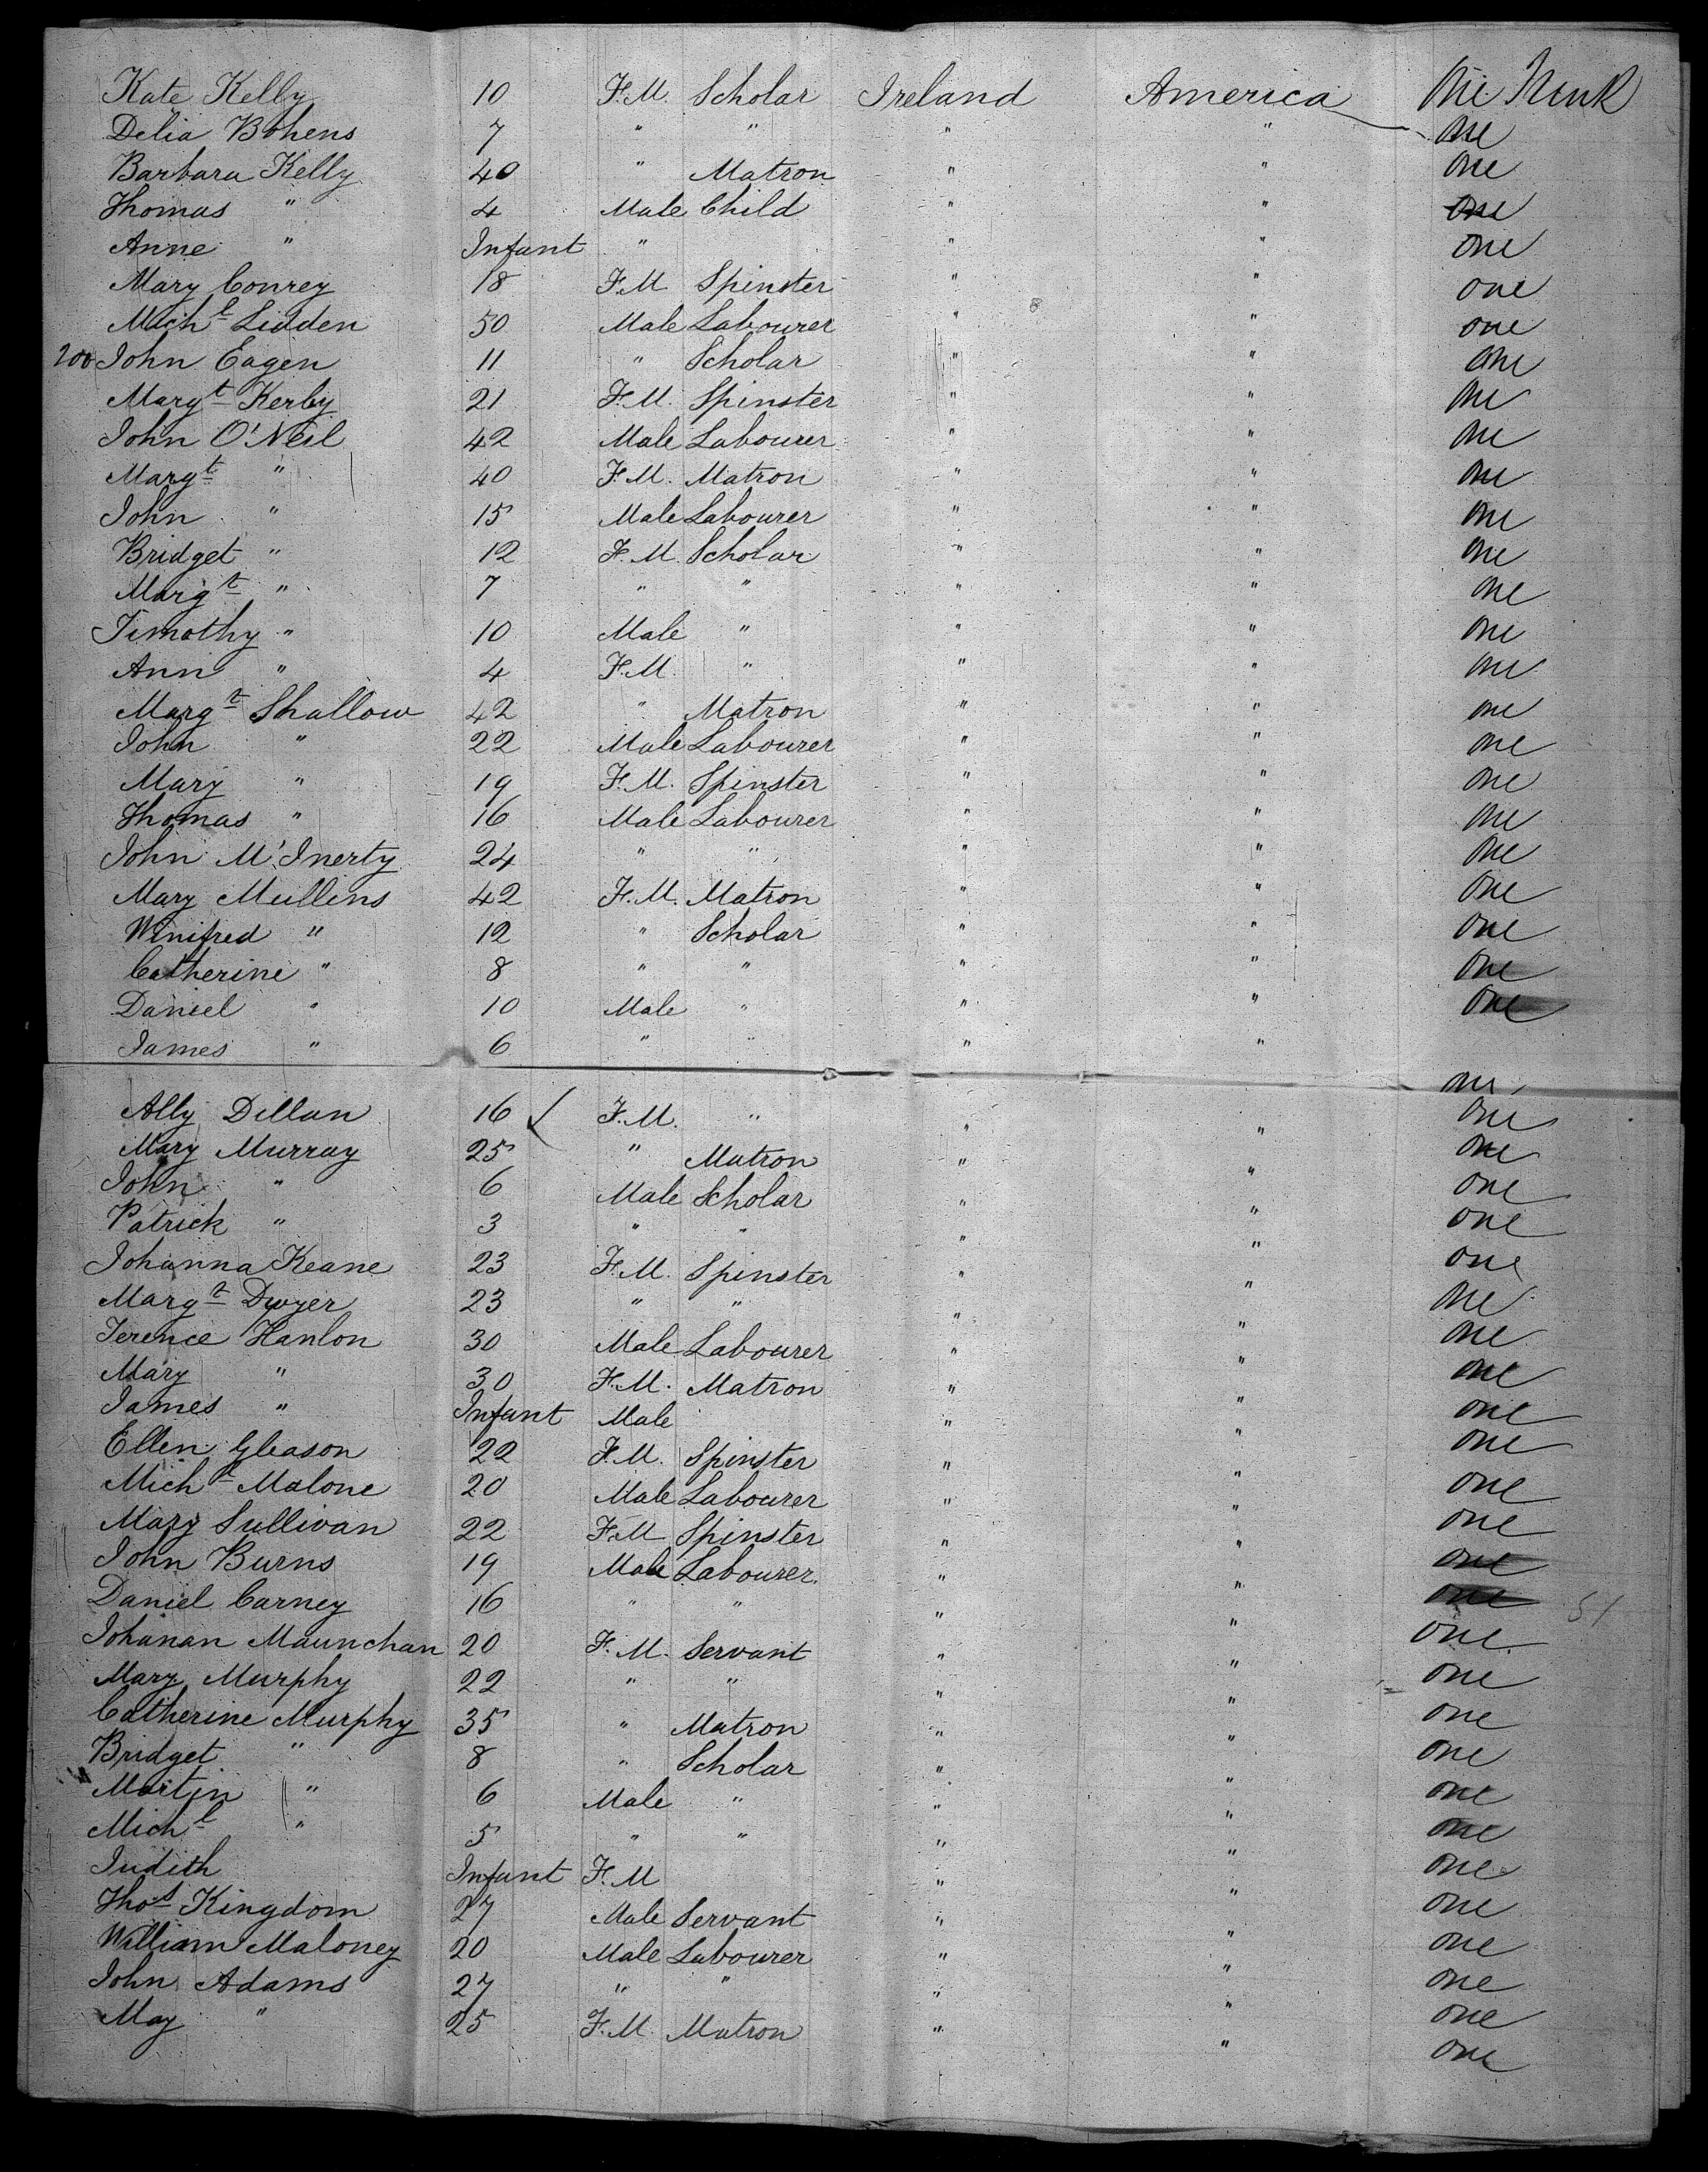 Kate Kelly 10 F.M. Scholar Ireland America One Trunk
Delia Bohens 7 " " " " One
Barbara Kelly 40 " Matron " " One
Thomas " 4 Male Child " " One
Anne " Infant " " " One
Mary Conrey 18 F.M. Spinster " " One
Michl Lidden 50 Male Labourer " " One
200 John Eagen 11 " Scholar " " One
Margt Kerby 21 F.M. Spinster " " One
John O'Neil 42 Male Labourer " " One
Margt " 40 F.M. Matron " " One
John " 15 Male Labourer " " One
Bridget " 12 F.M. Scholar " " One
Margt " 7 " " " " One
Timothy " 10 Male " " " One
Ann " 4 F.M. " " " One
Margt Shallow 42 " Matron " " One
John " 22 Male Labourer " " One
Mary " 19 F.M. Spinster " " One
Thomas " 16 Male Labourer " " One
John M'Inerty 24 " " " " One
Mary Mullins 42 F.M. Matron " " One
Winifred " 12 " Scholar " " One
Catherine " 8 " " " " One
Daniel " 10 Male " " " One
James " 6 " " " " One
Ally Dillan 16 ✓ F.M. " " " One
Mary Murray 25 " Matron " " One
John " 6 Male Scholar " " One
Patrick " 3 " " " " One
Johanna Keane 23 F.M. Spinster " " One
Margt Dwyer 23 " " " " One
Terence Hanlon 30 Male Labourer " " One
Mary " 30 F.M. Matron " " One
James " Infant Male " " One
Ellen Gleason 22 F.M. Spinster " " One
Michl Malone 20 Male Labourer " " One
Mary Sullivan 22 F.M. Spinster " " One
John Burns 19 Male Labourer " " One
Daniel Carney 16 " " " " One 51
Johanan Maunchan 20 F.M. Servant " " One
Mary Murphy 22 " " " " One
Catherine Murphy 35 " Matron " " One
Bridget " 8 " Scholar " " One
Martin " 6 Male " " " One
Michl " 5 " " " " One
Judith Infant F.M " " One
Thos Kingdom 27 Male Servant " " One
William Maloney 20 Male Labourer " " One
John Adams 27 " " " " One
May " 25 F.M. Matron " " One